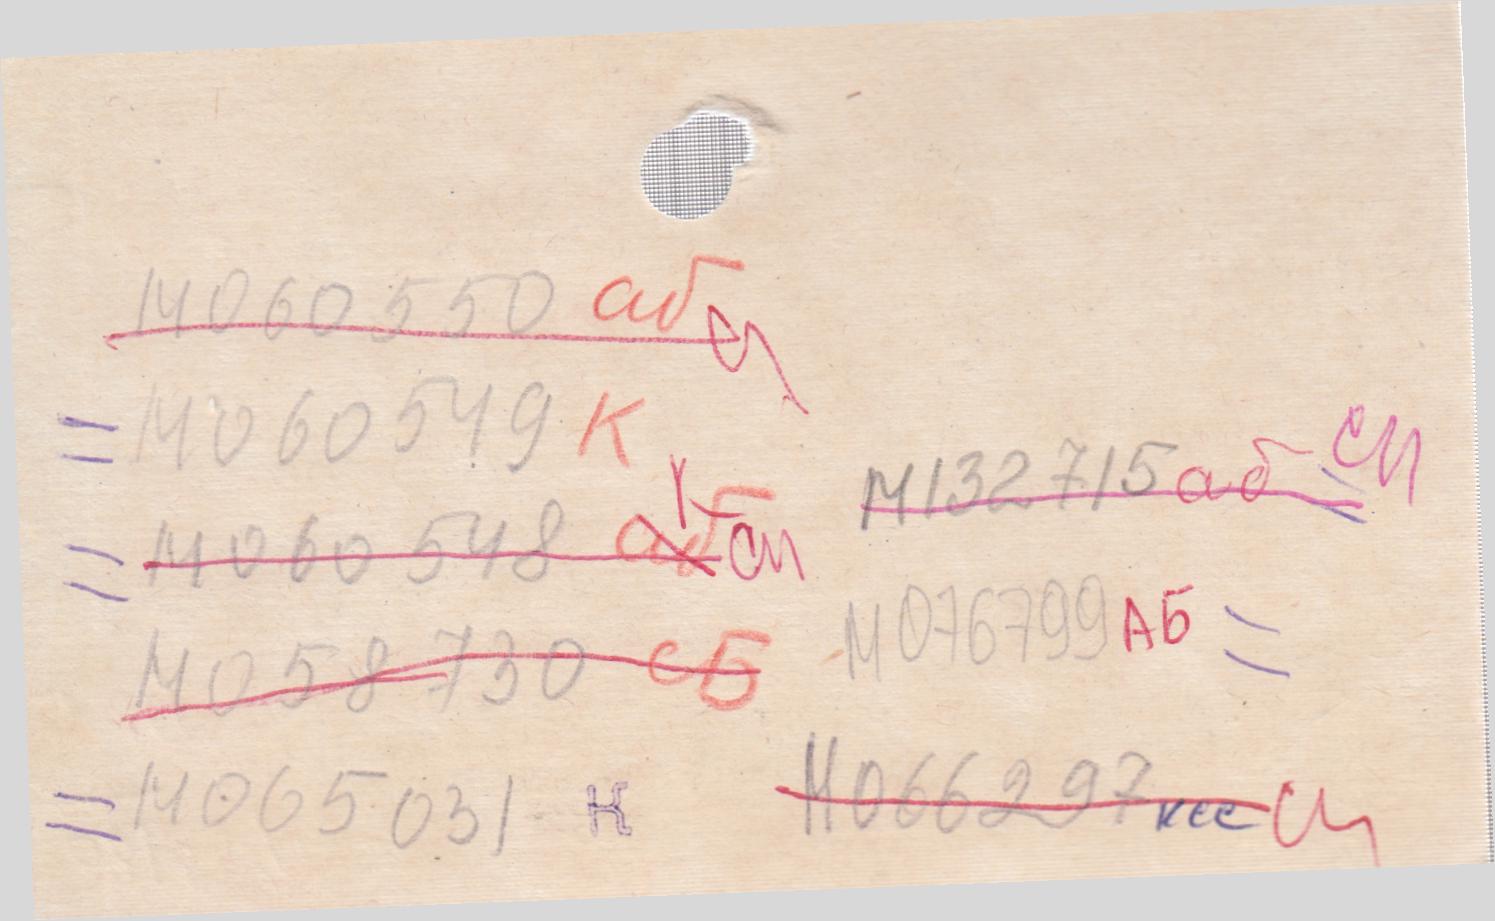 М060550 аб си
= М060549 К
= М060548 аб К си
М058730 сБ
= М065031 К
М132715 аб = си
М076799 АБ =
М066297 кес си